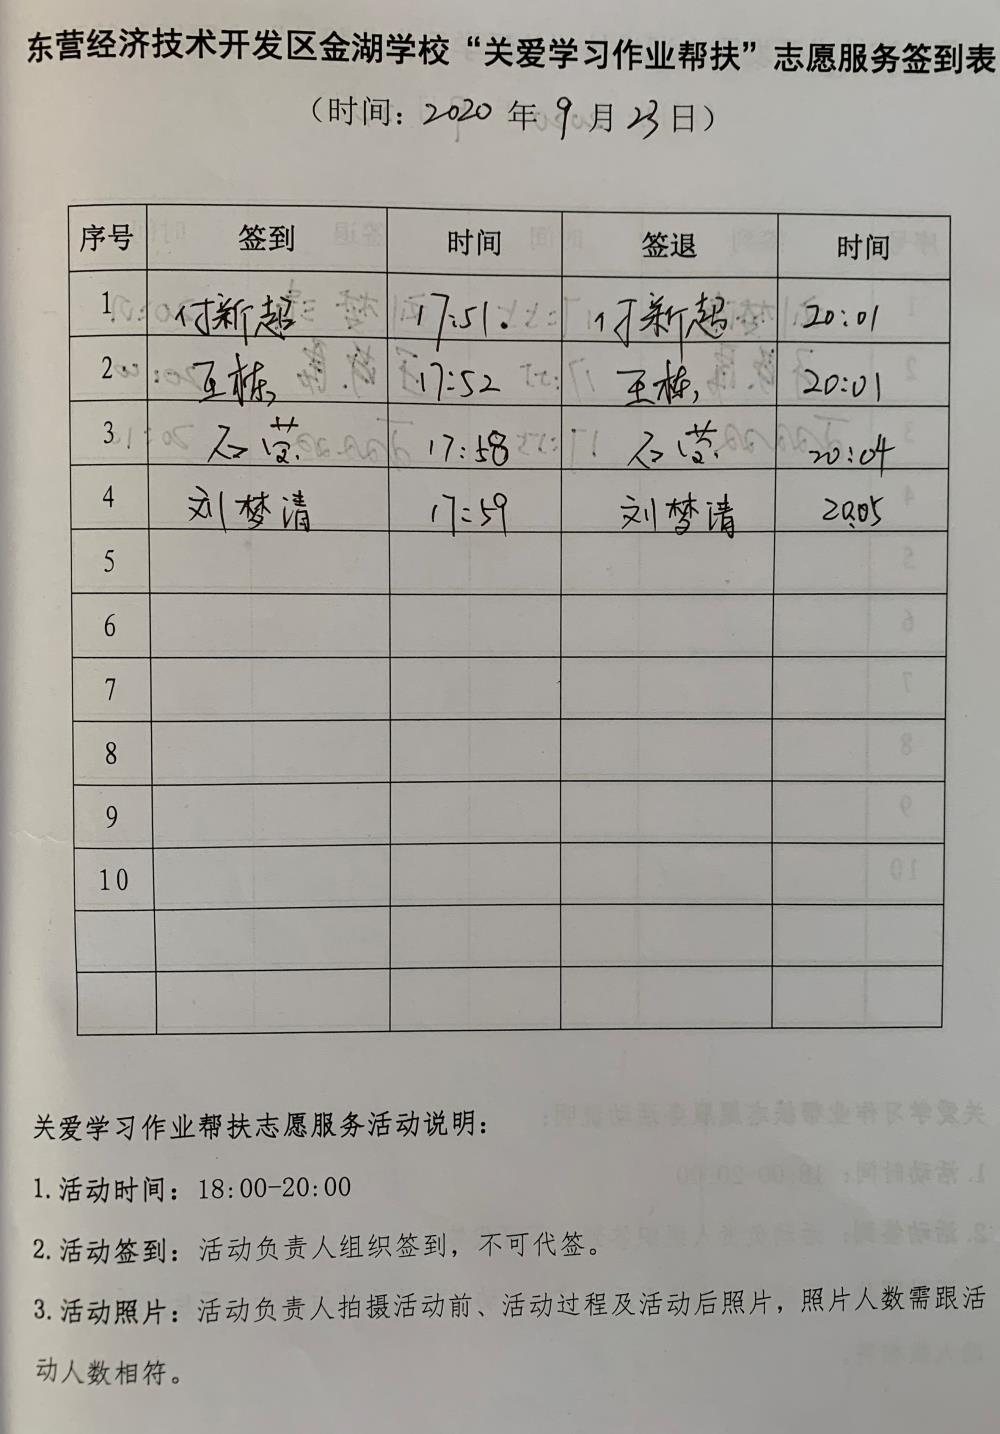 东营经济技术开发区金湖学校“关爱学习作业帮扶”志愿服务签到表
（时间：2020 年 9 月 23 日）
序号 签到 时间 签退 时间
1 付新超 17:51. 付新超 20:01
2 王栋 17:52 王栋 20:01
3 石莹 17:58 石莹 20:04
4 刘梦清 17:59 刘梦清 20:05
5
6
7
8
9
10
关爱学习作业帮扶志愿服务活动说明：
1.活动时间：18:00-20:00
2.活动签到：活动负责人组织签到，不可代签。
3.活动照片：活动负责人拍摄活动前、活动过程及活动后照片，照片人数需跟活
动人数相符。